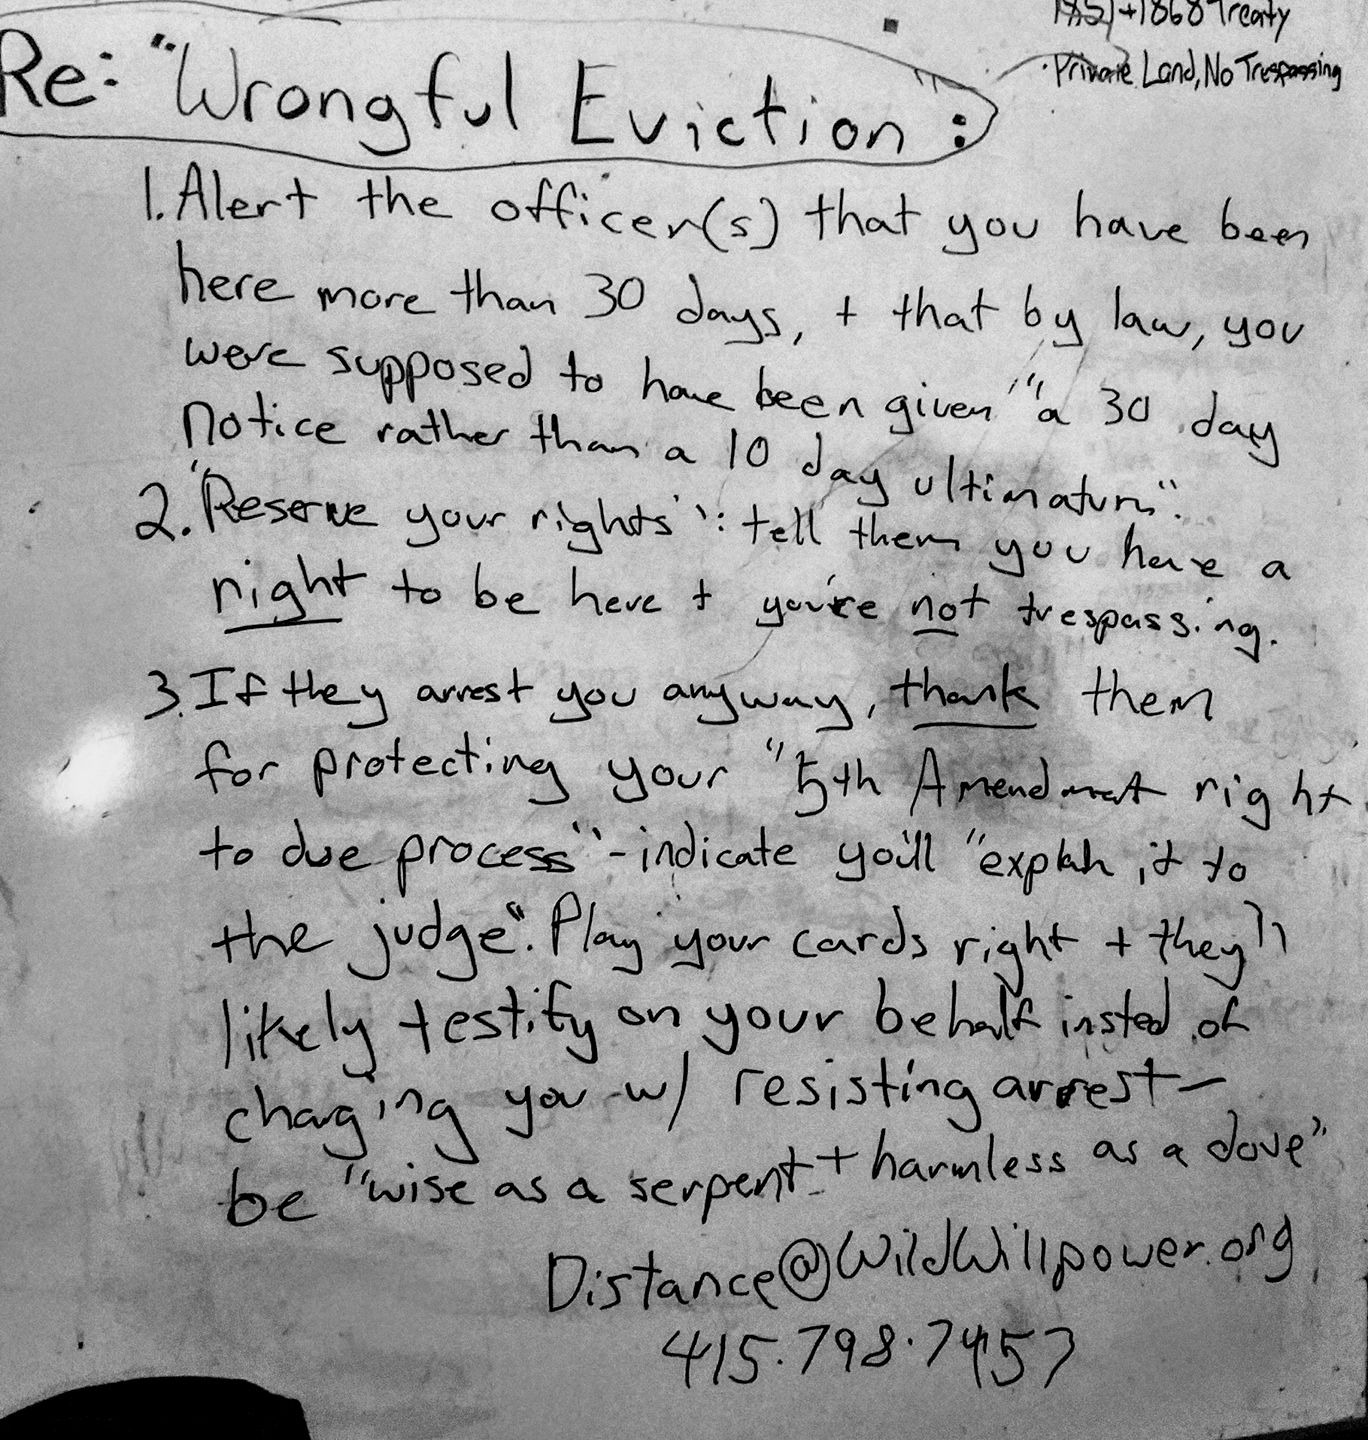 1851+1868 Treaty
· Private Land, No Trespassing
Re: "Wrongful Eviction":
1. Alert the officer(s) that you have been
here more than 30 days, + that by law, you
were supposed to have been given "a 30 day
notice rather than a 10 day ultimatum".
2. "Reserve your rights": tell them you have a
right to be here + you're not trespassing.
3. If they arrest you anyway, thank them
for protecting your "5th Amendment right
to due process" - indicate you'll "explain it to
the judge". Play your cards right + they'll
likely testify on your behalf insted of
charging you w/ resisting arrest—
be "wise as a serpent + harmless as a dove"
Distance@WildWillpower.org
415.798.7457